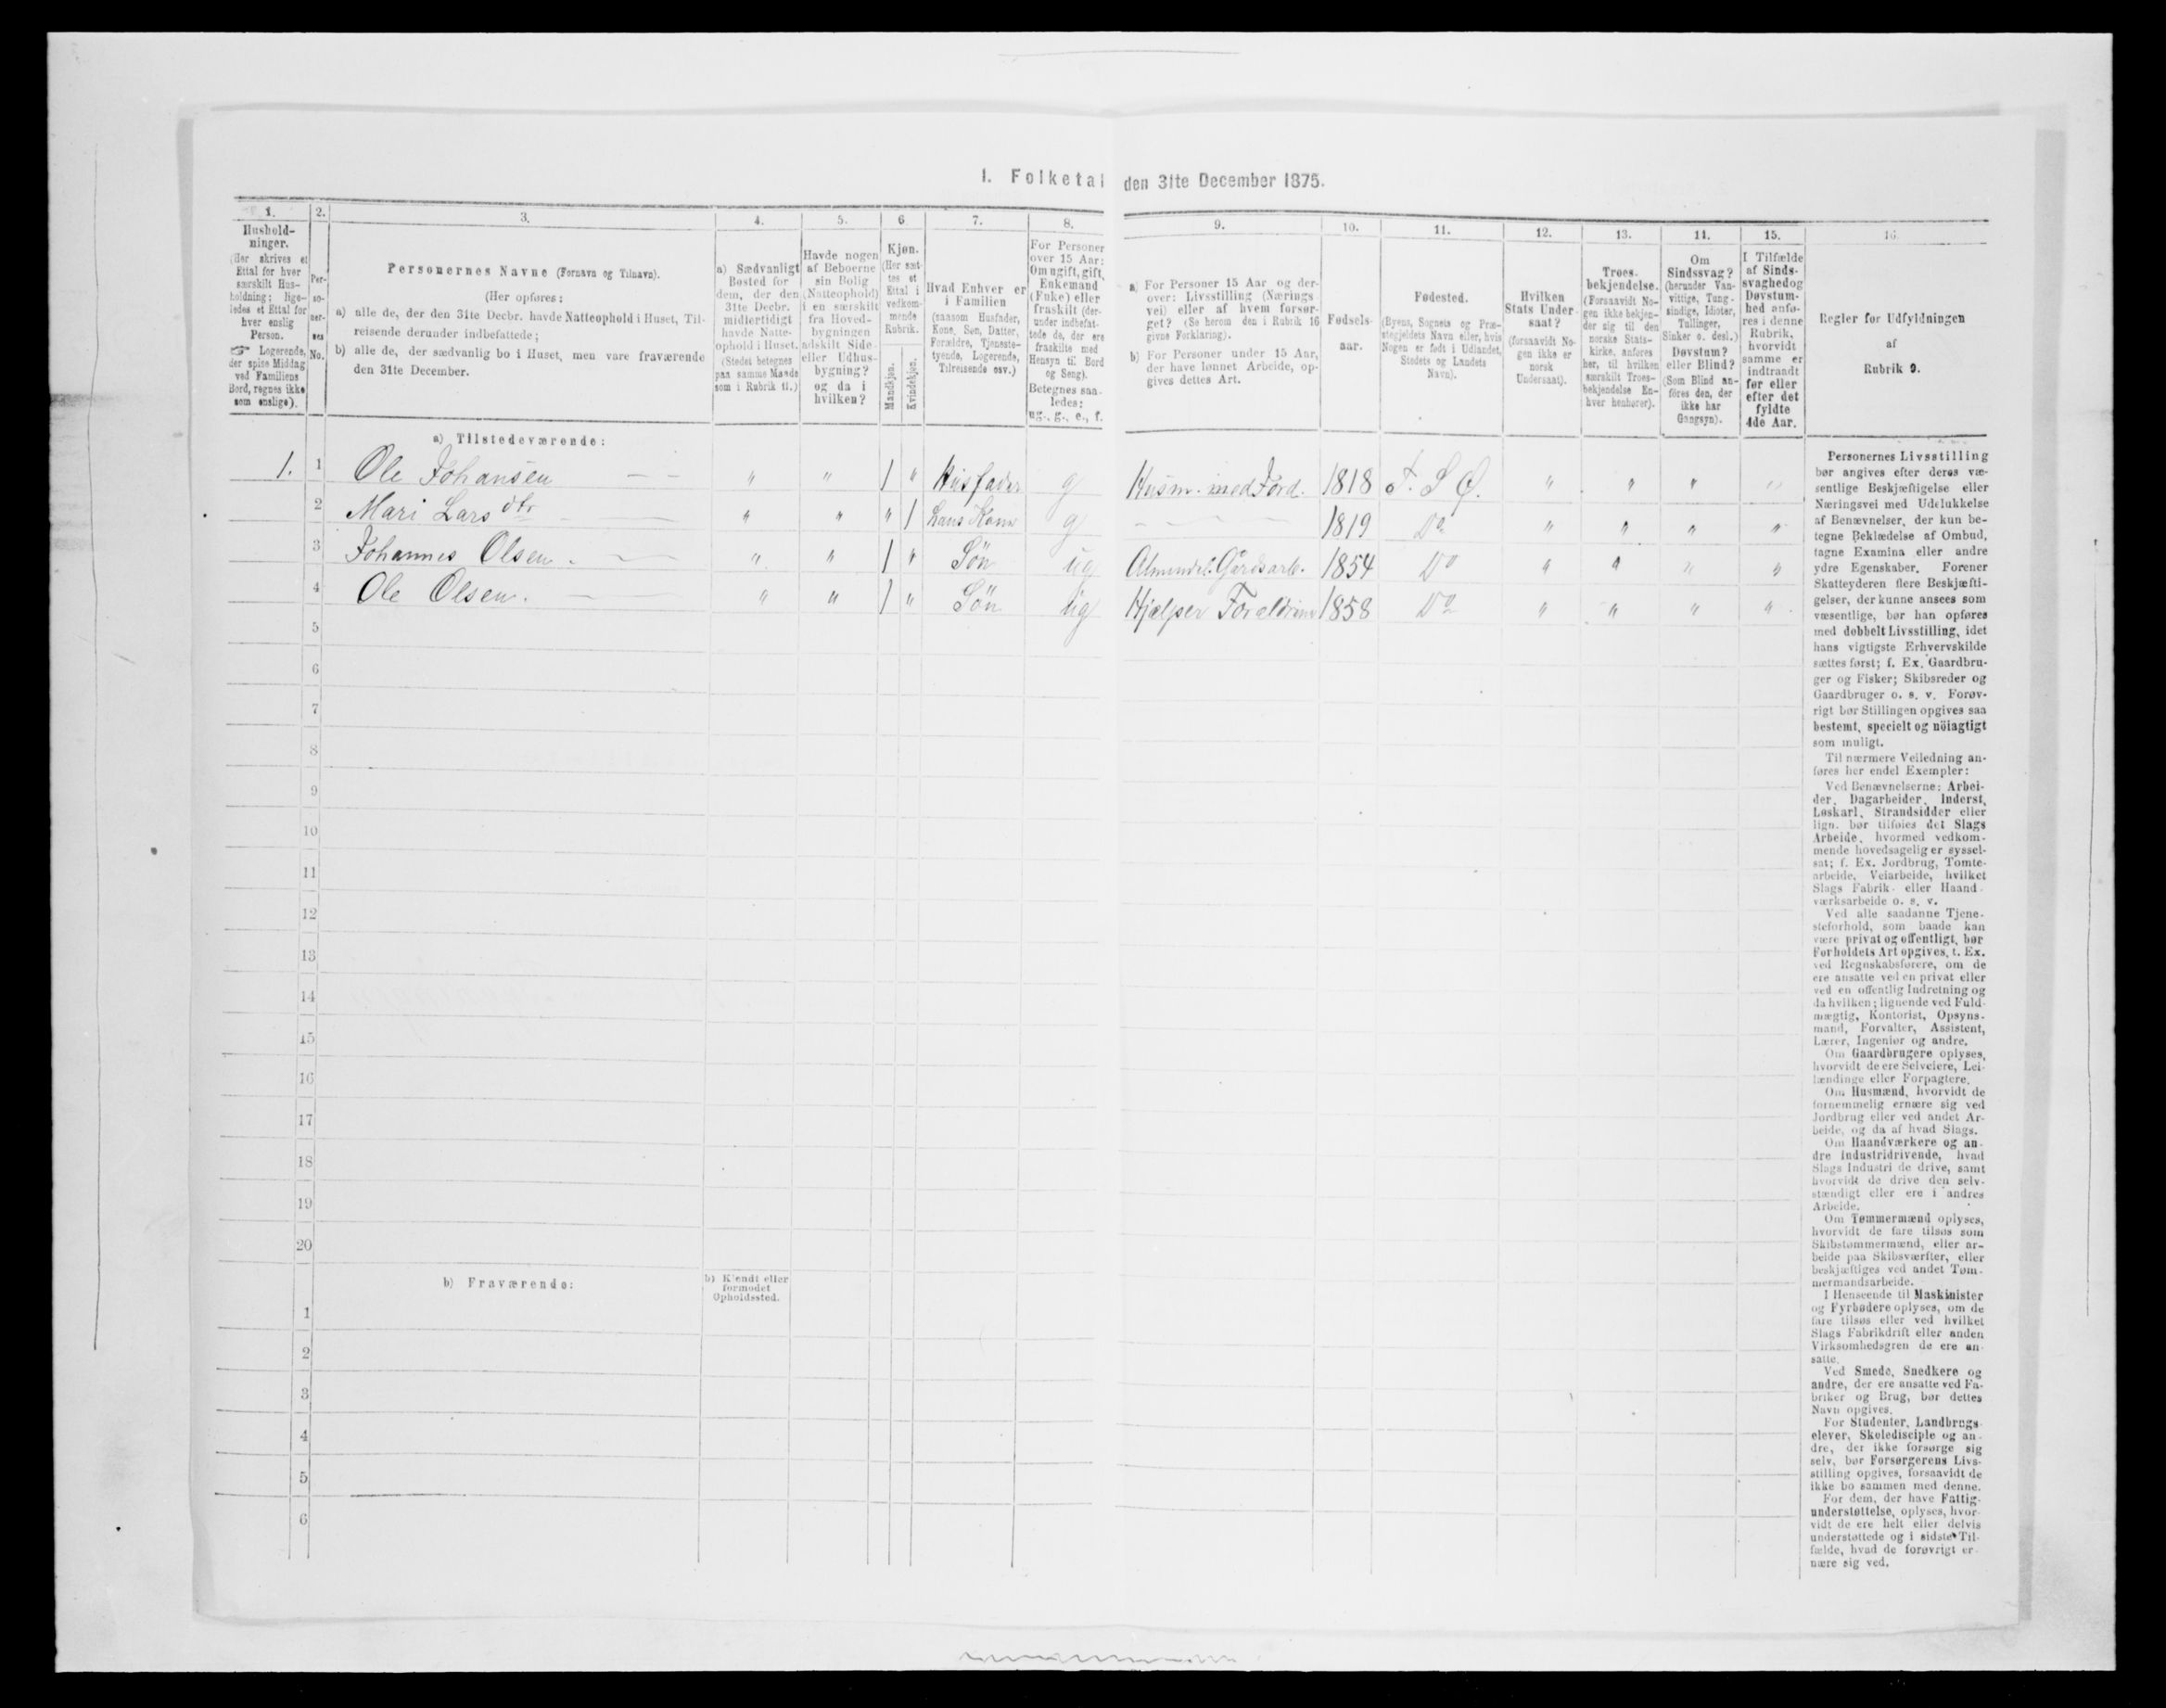 1. Folketal den 31te December 1875.
1. 2. 3. 4. 5. 6 7. 8. 9. 10. 11. 12. 13. 14. 15. 16.
Hushold-
ninger.
(Her skrives et
Ettal for hver
særskilt Hus-
holdning; lige-
ledes et Ettal for
hver enslig
Person.
☞ Logerende,
der spise Middag
ved Familiens
Bord, regnes ikke
som enslige).
Per-
so-
ner-
nes
No.
Personernes Navne (Fornavn og Tilnavn).
(Her opføres:
a) alle de, der den 31te Decbr. havde Natteophold i Huset, Til-
reisende derunder indbefattede;
b) alle de, der sædvanlig bo i Huset, men vare fraværende
den 31te December.
a) Sædvanligt
Bosted for
dem, der den
31te Decbr.
midlertidigt
havde Natte-
ophold i Huset.
(Stedet betegnes
paa samme Maade
som i Rubrik 11.)
Havde nogen
af Beboerne
sin Bolig
(Natteophold)
i en særskilt
fra Hoved-
bygningen
adskilt Side-
eller Udhus-
bygning?
og da i
hvilken?
Kjøn.
(Her sæt-
tes et
Ettal i
vedkom-
mende
Rubrik.
Mandkjøn.
Kvindekjøn.
Hvad Enhver er
i Familien
(saasom Husfader,
Kone, Søn, Datter,
Forældre, Tjeneste-
tyende, Logerende,
Tilreisende osv.)
For Personer
over 15 Aar:
Om ugift, gift,
Enkemand
(Enke) eller
fraskilt (der-
under indbefat-
tede de, der ere
fraskilte med
Hensyn til Bord
og Seng).
Betegnes saa-
ledes:
ug., g., e., f.
a) For Personer 15 Aar og der-
over: Livsstilling (Nærings-
vei) eller af hvem forsør-
get? (Se herom den i Rubrik 16
givne Forklaring).
b) For Personer under 15 Aar,
der have lønnet Arbeide, op-
gives dettes Art.
Fødsels-
aar.
Fødested.
(Byens, Sognets og Præ-
stegjeldets Navn eller, hvis
Nogen er født i Udlandet,
Stedets og Landets
Navn).
Hvilken
Stats Under-
saat?
(forsaavidt No-
gen ikke er
norsk
Undersaat).
Troes-
bekjendelse.
(Forsaavidt No-
gen ikke bekjen-
der sig til den
norske Stats-
kirke, anføres
her, til hvilken
særskilt Troes-
bekjendelse En-
hver henhører).
Om
Sindssvag?
(herunder Van-
vittige, Tung-
sindige, Idioter,
Tullinger,
Sinker o. desl.)
Døvstum?
eller Blind?
(Som Blind an-
føres den, der
ikke har
Gangsyn).
I Tilfælde
af Sinds-
svaghed og
Døvstum-
hed anfø-
res i denne
Rubrik,
hvorvidt
samme er
indtraadt
før eller
efter det
fyldte
4de Aar.
Regler for Udfyldningen
af
Rubrik 9.
a) Tilstedeværende:
1. 1 Ole Johansen — — " " 1 " Husfader g Husm. med Jord. 1818 T. S Ø. " " " "
2 Mari Larsdtr — — " " " 1 hans Kone g — — — 1819 Do " " " "
3 Johannes Olsen. — — " " 1 " Sön ug Gårdsarb. 1854 Do " " " "
4 Ole Olsen. — — " " 1 " Sön ug Hjælper Forældrene 1858 Do " " " "
5
6
7
8
9
10
11
12
13
14
15
16
17
18
19
20
b) Fraværende:
b) Kjendt eller
formodet
Opholdssted.
1
2
3
4
5
6
Personernes Livsstilling
bør angives efter deres væ-
sentlige Beskjæftigelse eller
Næringsvei med Udelukkelse
af Benævnelser, der kun be-
tegne Beklædelse af Ombud,
tagne Examina eller andre
ydre Egenskaber. Forener
Skatteyderen flere Beskjæfti-
gelser, der kunne ansees som
væsentlige, bør han opføres
med dobbelt Livsstilling, idet
hans vigtigste Erhvervskilde
sættes først; f. Ex. Gaardbru-
ger og Fisker; Skibsreder og
Gaardbruger o. s. v. Forøv-
rigt bør Stillingen opgives saa
bestemt, specielt og nöiagtigt
som muligt.
Til nærmere Veiledning an-
føres her endel Exempler:
Ved Benævnelserne: Arbei-
der, Dagarbeider, Inderst,
Løskarl, Strandsidder eller
lign. bør tilføies det Slags
Arbeide, hvormed vedkom-
mende hovedsagelig er syssel-
sat; f. Ex. Jordbrug, Tomte-
arbeide, Veiarbeide, hvilket
Slags Fabrik- eller Haand-
værksarbeide o. s. v.
Ved alle saadanne Tjene-
steforhold, som baade kan
være privat og offentligt, bør
Forholdets Art opgives, t. Ex.
ved Regnskabsførere, om de
ere ansatte ved en privat eller
ved en offentlig Indretning og
da hvilken; lignende ved Fuld-
mægtig, Kontorist, Opsyns-
mand, Forvalter, Assistent,
Lærer, Ingeniør og andre.
Om Gaardbrugere oplyses,
hvorvidt de ere Selveiere, Lei-
lændinge eller Forpagtere.
Om Husmænd, hvorvidt de
fornemmelig ernære sig ved
Jordbrug eller ved andet Ar-
beide, og da af hvad Slags.
Om Haandværkere og an-
dre industridrivende, hvad
Slags Industri de drive, samt
hvorvidt de drive den selv-
stændigt eller ere i andres
Arbeide.
Om Tømmermænd oplyses,
hvorvidt de fare tilsøs som
Skibstømmermænd, eller ar-
beide paa Skibsværfter, eller
beskjæftiges ved andet Tøm-
mermandsarbeide.
I Henseende til Maskinister
og Fyrbødere oplyses, om de
fare tilsøs eller ved hvilket
Slags Fabrikdrift eller anden
Virksomhedsgren de ere an-
satte.
Ved Smede, Snedkere og
andre, der ere ansatte ved Fa-
briker og Brug, bør dettes
Navn opgives.
For Studenter, Landbrugs-
elever, Skoledisciple og an-
dre, der ikke forsørge sig
selv, bør Forsørgerens Livs-
stilling opgives, forsaavidt de
ikke bo sammen med denne.
For dem, der have Fattig-
understøttelse, oplyses, hvor-
vidt de ere helt eller delvis
understøttede og i sidste Til-
fælde, hvad de forøvrigt er-
nære sig ved.